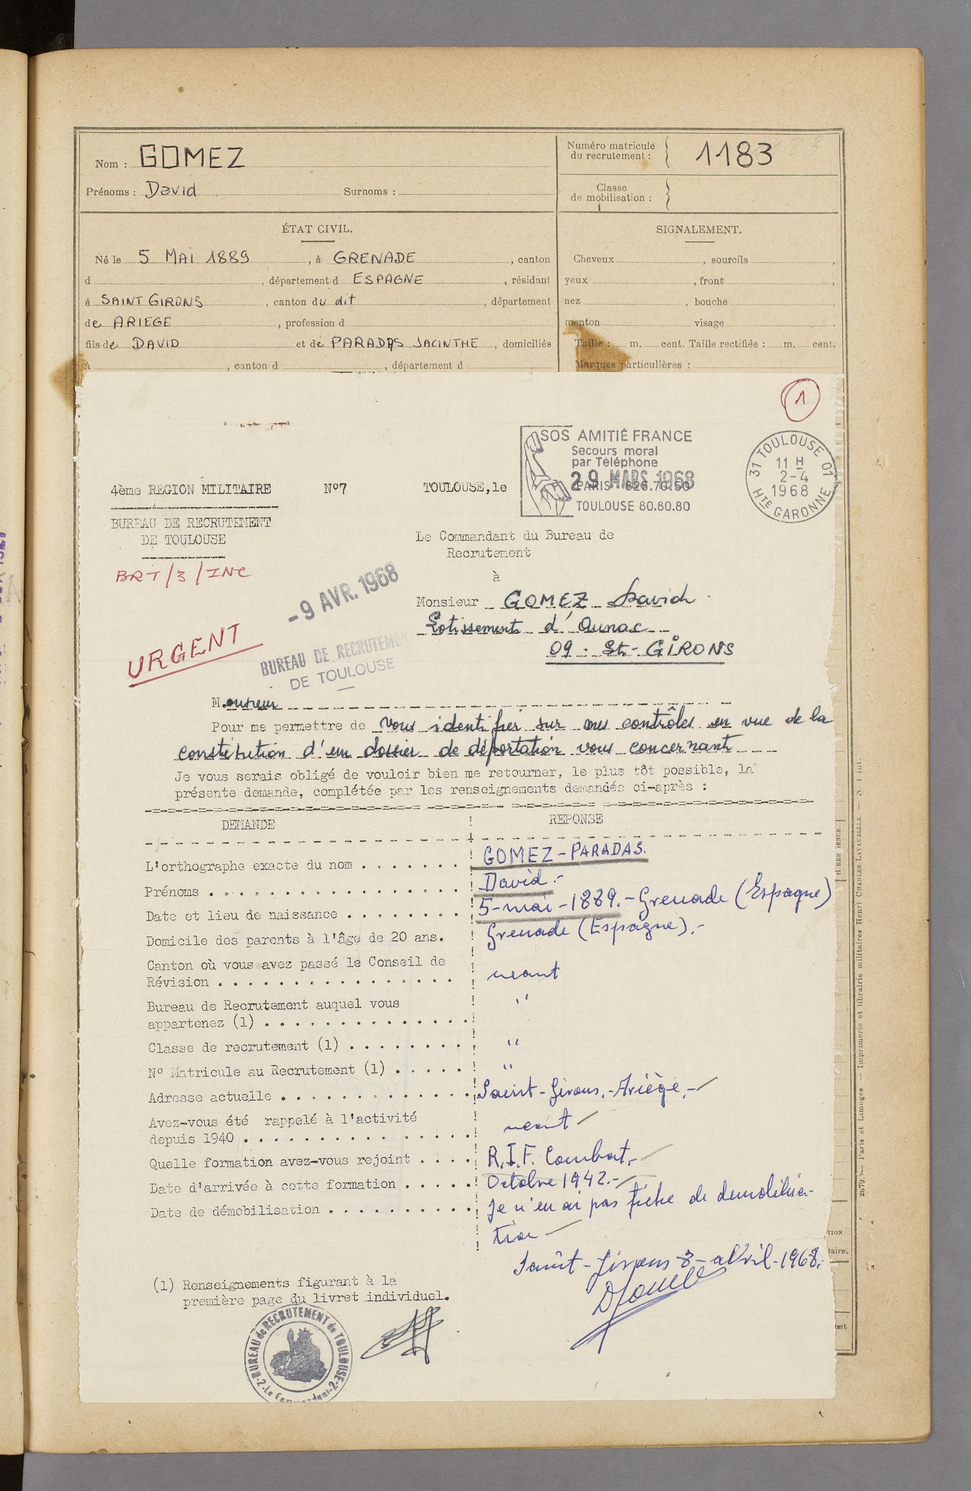 Nom : GOMEZ
Prénoms : David Surnoms :
Numéro matricule du recrutement : 1183
Classe de mobilisation :
ÉTAT CIVIL.
Né le 5 MAI 1889, à GRENADE, canton
d, département d ESPAGNE, résidant
à SAINT GIRONS, canton du dit, département
de ARIEGE, profession d
fils de DAVID et de PARADAS JACINTHE, domiciliés
à, canton d, département d
SIGNALEMENT.
Cheveux, sourcils,
yeux, front,
nez, bouche,
menton visage.
Taille : m. cent. Taille rectifiée : m. cent.
Marques particulières :
1
SOS AMITIÉ FRANCE
Secours moral
par Téléphone
29 MARS 1968
PARIS 825.70.50
TOULOUSE 80.80.80
31 TOULOUSE 01
11 H
2-4
1968
HTE GARONNE
4ème REGION MILITAIRE N°7 TOULOUSE, le
BUREAU DE RECRUTEMENT
DE TOULOUSE
BRT/3/INC
Le Commandant du Bureau de
Recrutement
à
- 9 AVR. 1968
Monsieur GOMEZ David
Lotissement d'Aunac
09. St-GIRONS
URGENT
BUREAU DE RECRUTEMENT
DE TOULOUSE
Monsieur
Pour me permettre de vous identifier sur mes contrôles en vue de la
constitution d'un dossier de déportation vous concernant
Je vous serais obligé de vouloir bien me retourner, le plus tôt possible, la
présente demande, complétée par les renseignements demandés ci-après :
DEMANDE ! REPONSE
L'orthographe exacte du nom . . . . . . . ! GOMEZ-PARADAS.
Prénoms . . . . . . . . . . . . . . . . ! David.-
Date et lieu de naissance . . . . . . . . ! 5-mai-1889.-Grenade (Espagne)
Domicile des parents à l'âge de 20 ans. ! Grenade (Espagne).-
Canton où vous avez passé le Conseil de
Révision . . . . . . . . . . . . . . . . ! neant
Bureau de Recrutement auquel vous
appartenez (1) . . . . . . . . . . . . . . ! "
Classe de recrutement (1) . . . . . . . . ! "
N° Matricule au Recrutement (1) . . . . . ! "
Adresse actuelle . . . . . . . . . . . . . ! Saint-Girons.-Ariège.-
Avez-vous été rappelé à l'activité
depuis 1940 . . . . . . . . . . . . . . . ! neant
Quelle formation avez-vous rejoint . . . . ! R.I.F. Combat.-
Date d'arrivée à cette formation . . . . . ! Octobre 1942.-
Date de démobilisation . . . . . . . . . . ! Je n'en ai pas fiche de demobilisa-
tion
Saint-Girons 8-abril-1968.
(1) Renseignements figurant à la
première page du livret individuel.
BUREAU de RECRUTEMENT de TOULOUSE